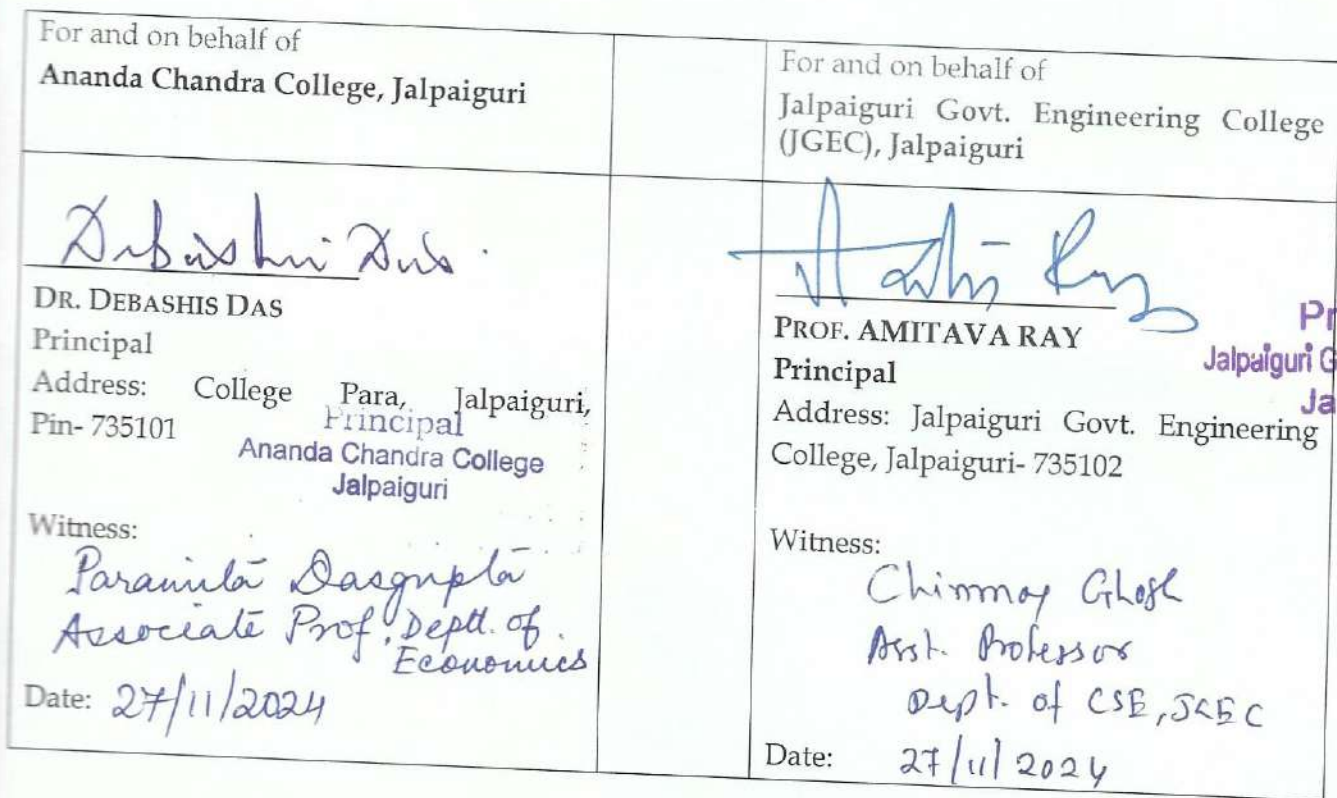 For and on behalf of
Ananda Chandra College, Jalpaiguri
Debashis Das
DR. DEBASHIS DAS
Principal
Address: College Para, Jalpaiguri,
Pin- 735101
Principal
Ananda Chandra College
Jalpaiguri
Witness:
Paramita Dasgupta
Associate Prof, Deptt. of
Economics
Date: 27/11/2024
For and on behalf of
Jalpaiguri Govt. Engineering College
(JGEC), Jalpaiguri
Ray
PROF. AMITAVA RAY
Principal
Address: Jalpaiguri Govt. Engineering
College, Jalpaiguri- 735102
Pr
Jalpaiguri G
Ja
Witness:
Chinmoy Ghosh
Asst. Professor
Dept. of CSE, JGEC
Date: 27/11/2024